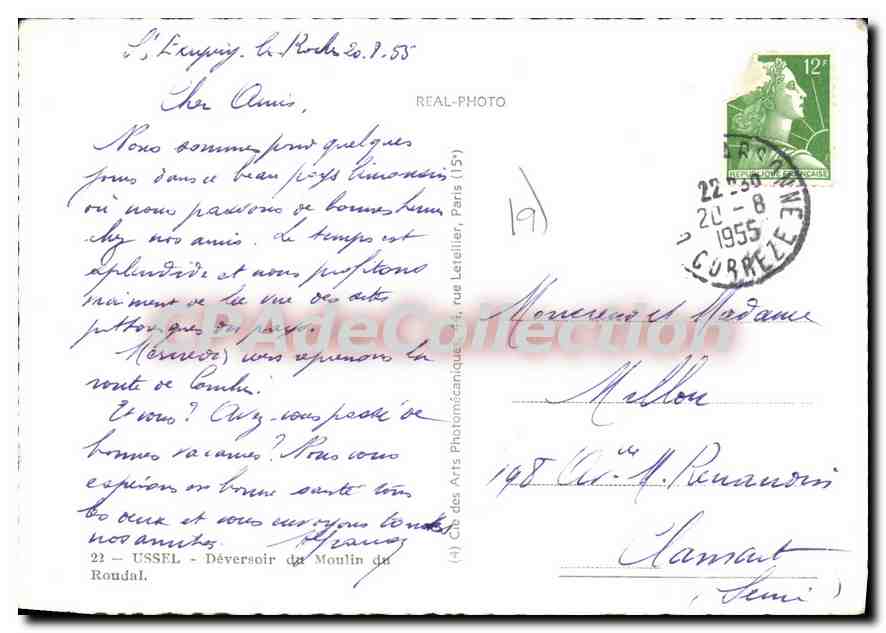 St Exupéry les Roches 20.8.55
Cher Amis,
Nous sommes pour quelques
jours dans ce beau pays limousin
où nous passons de bonnes
chez nos amis. Le temps est
splendide et nous profitons
vraiment de la vue des
pittoresques du pays.
Mercredi nous reprenons la
route de
Et vous? Avez-vous passé de
bonnes vacances? Nous vous
espérons en bonne santé tous
les deux et vous envoyons toutes
nos amitiés.
22 — USSEL - Déversoir du Moulin du
Roudal.
REAL-PHOTO
(4) Cie des Arts Photomécaniques, 44, rue Letellier, Paris (15e)
19)
12F
REPUBLIQUE FRANÇAISE
22 H30
20 - 8
1955
CORREZE
Monsieur et Madame
Millou
198 Av.ue H. Renaudin
Clamart
(Seine)
CPAdeCollection